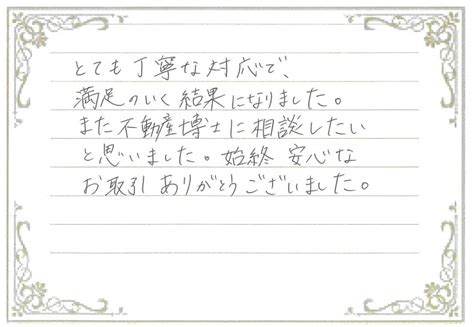 とても丁寧な対応で、
満足のいく結果になりました。
また不動産博士に相談したい
と思いました。始終 安心な
お取引 ありがとうございました。